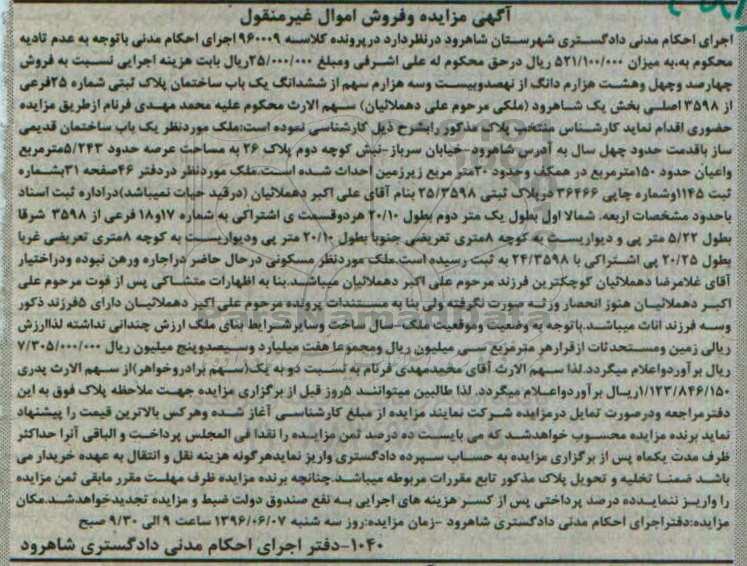 آگهی مزایده وفروش اموال غیرمنقول
اجرای احکام مدنی دادگستری شهرستان شاهرود درنظردارد درپرونده کلاسه ۹۶۰۰۰۹ اجرای احکام مدنی باتوجه به عدم تادیه
محکوم به،به میزان ۵۲۱/۱۰۰/۰۰۰ ریال درحق محکوم له علی اشرفی ومبلغ ۲۵/۰۰۰/۰۰۰ریال بابت هزینه اجرایی نسبت به فروش
چهارصد وچهل وهشت هزارم دانگ از نهصدوبیست وسه هزارم سهم از ششدانگ یک باب ساختمان پلاک ثبتی شماره ۲۵فرعی
از ۳۵۹۸ اصلی بخش یک شاهرود (ملکی مرحوم علی دهملائیان) سهم الارث محکوم علیه محمد مهدی فرنام ازطریق مزایده
حضوری اقدام نماید کارشناس منتخب پلاک مذکور رابشرح ذیل کارشناسی نموده است:ملک موردنظر یک باب ساختمان قدیمی
ساز باقدمت حدود چهل سال به آدرس شاهرود-خیابان سرباز-نبش کوچه دوم پلاک ۲۶ به مساحت عرصه حدود ۵/۲۴۳مترمربع
واعیان حدود ۱۵۰مترمربع در همکف وحدود ۲۰متر مربع زیرزمین احداث شده است.ملک موردنظر دردفتر ۴۶صفحه ۳۱بشماره
ثبت ۱۱۴۵وشماره چاپی ۳۶۴۶۶ درپلاک ثبتی ۲۵/۳۵۹۸ بنام آقای علی اکبر دهملائیان (درقید حیات نمیباشد)دراداره ثبت اسناد
باحدود مشخصات اربعه. شمالا اول بطول یک متر دوم بطول ۲۰/۱۰ هردوقسمت ی اشتراکی به شماره ۱۷و۱۸ فرعی از ۳۵۹۸ شرقا
بطول ۵/۲۲ متر پی و دیواریست به کوچه ۸متری تعریضی جنوبا بطول ۲۰/۱۰ متر پی ودیواریست به کوچه ۸متری تعریضی غربا
بطول ۲۰/۲۵ پی اشتراکی با ۲۴/۳۵۹۸ به ثبت رسیده است.ملک موردنظر مسکونی درحال حاضر دراجاره ورهن نبوده ودراختیار
آقای غلامرضا دهملائیان کوچکترین فرزند مرحوم علی اکبر دهملائیان میباشد.بنا به اظهارات متشاکی پس از فوت مرحوم علی
اکبر دهملائیان هنوز انحصار ورثه صورت نگرفته ولی بنا به مستندات پرونده مرحوم علی اکبر دهملائیان دارای ۵فرزند ذکور
وسه فرزند اناث میباشد.باتوجه به وضعیت وموقعیت ملک-سال ساخت وسایرشرایط بنای ملک ارزش چندانی نداشته لذاارزش
ریالی زمین ومستحدثات ازقرارهر مترمربع سی میلیون ریال ومجموعا هفت میلیارد وسیصدوپنج میلیون ریال ۷/۳۰۵/۰۰۰/۰۰۰
ریال برآوردواعلام میگردد.لذا سهم الارث آقای محمدمهدی فرنام به نسبت دو به یک(سهم برادروخواهر)از سهم الارث پدری
۱/۱۲۳/۸۴۶/۱۵۰ریال برآوردواعلام میگردد. لذا طالبین میتوانند ۵روز قبل از برگزاری مزایده جهت ملاحظه پلاک فوق به این
دفترمراجعه ودرصورت تمایل درمزایده شرکت نمایند مزایده از مبلغ کارشناسی آغاز شده وهرکس بالاترین قیمت را پیشنهاد
نماید برنده مزایده محسوب خواهدشد که می بایست ده درصد ثمن مزایده را نقدا فی المجلس پرداخت و الباقی آنرا حداکثر
ظرف مدت یکماه پس از برگزاری مزایده به حساب سپرده دادگستری واریز نمایدهرگونه هزینه نقل و انتقال به عهده خریدار می
باشد ضمنا تخلیه و تحویل پلاک مذکور تابع مقررات مربوطه میباشد.چنانچه برنده مزایده ظرف مهلت مقرر مابقی ثمن مزایده
را واریز ننمایدده درصد پرداختی پس از کسر هزینه های اجرایی به نفع صندوق دولت ضبط و مزایده تجدیدخواهدشد.مکان
مزایده:دفتراجرای احکام مدنی دادگستری شاهرود -زمان مزایده:روز سه شنبه ۱۳۹۶/۰۶/۰۷ ساعت ۹ الی ۹/۳۰ صبح
۱۰۴۰-دفتر اجرای احکام مدنی دادگستری شاهرود
ParsNamadData